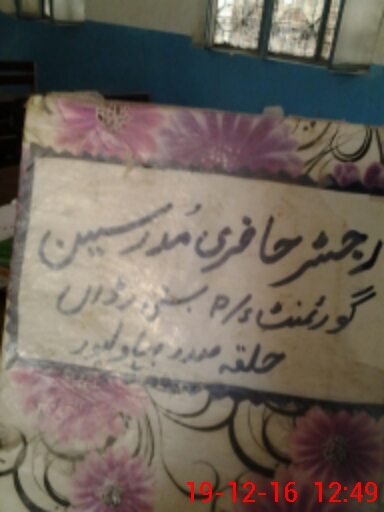 رجسٹر حاضری مُدرسین
گورنمنٹ P/S بستی
حلقہ صدر بہاولپور
19-12-16 12:49